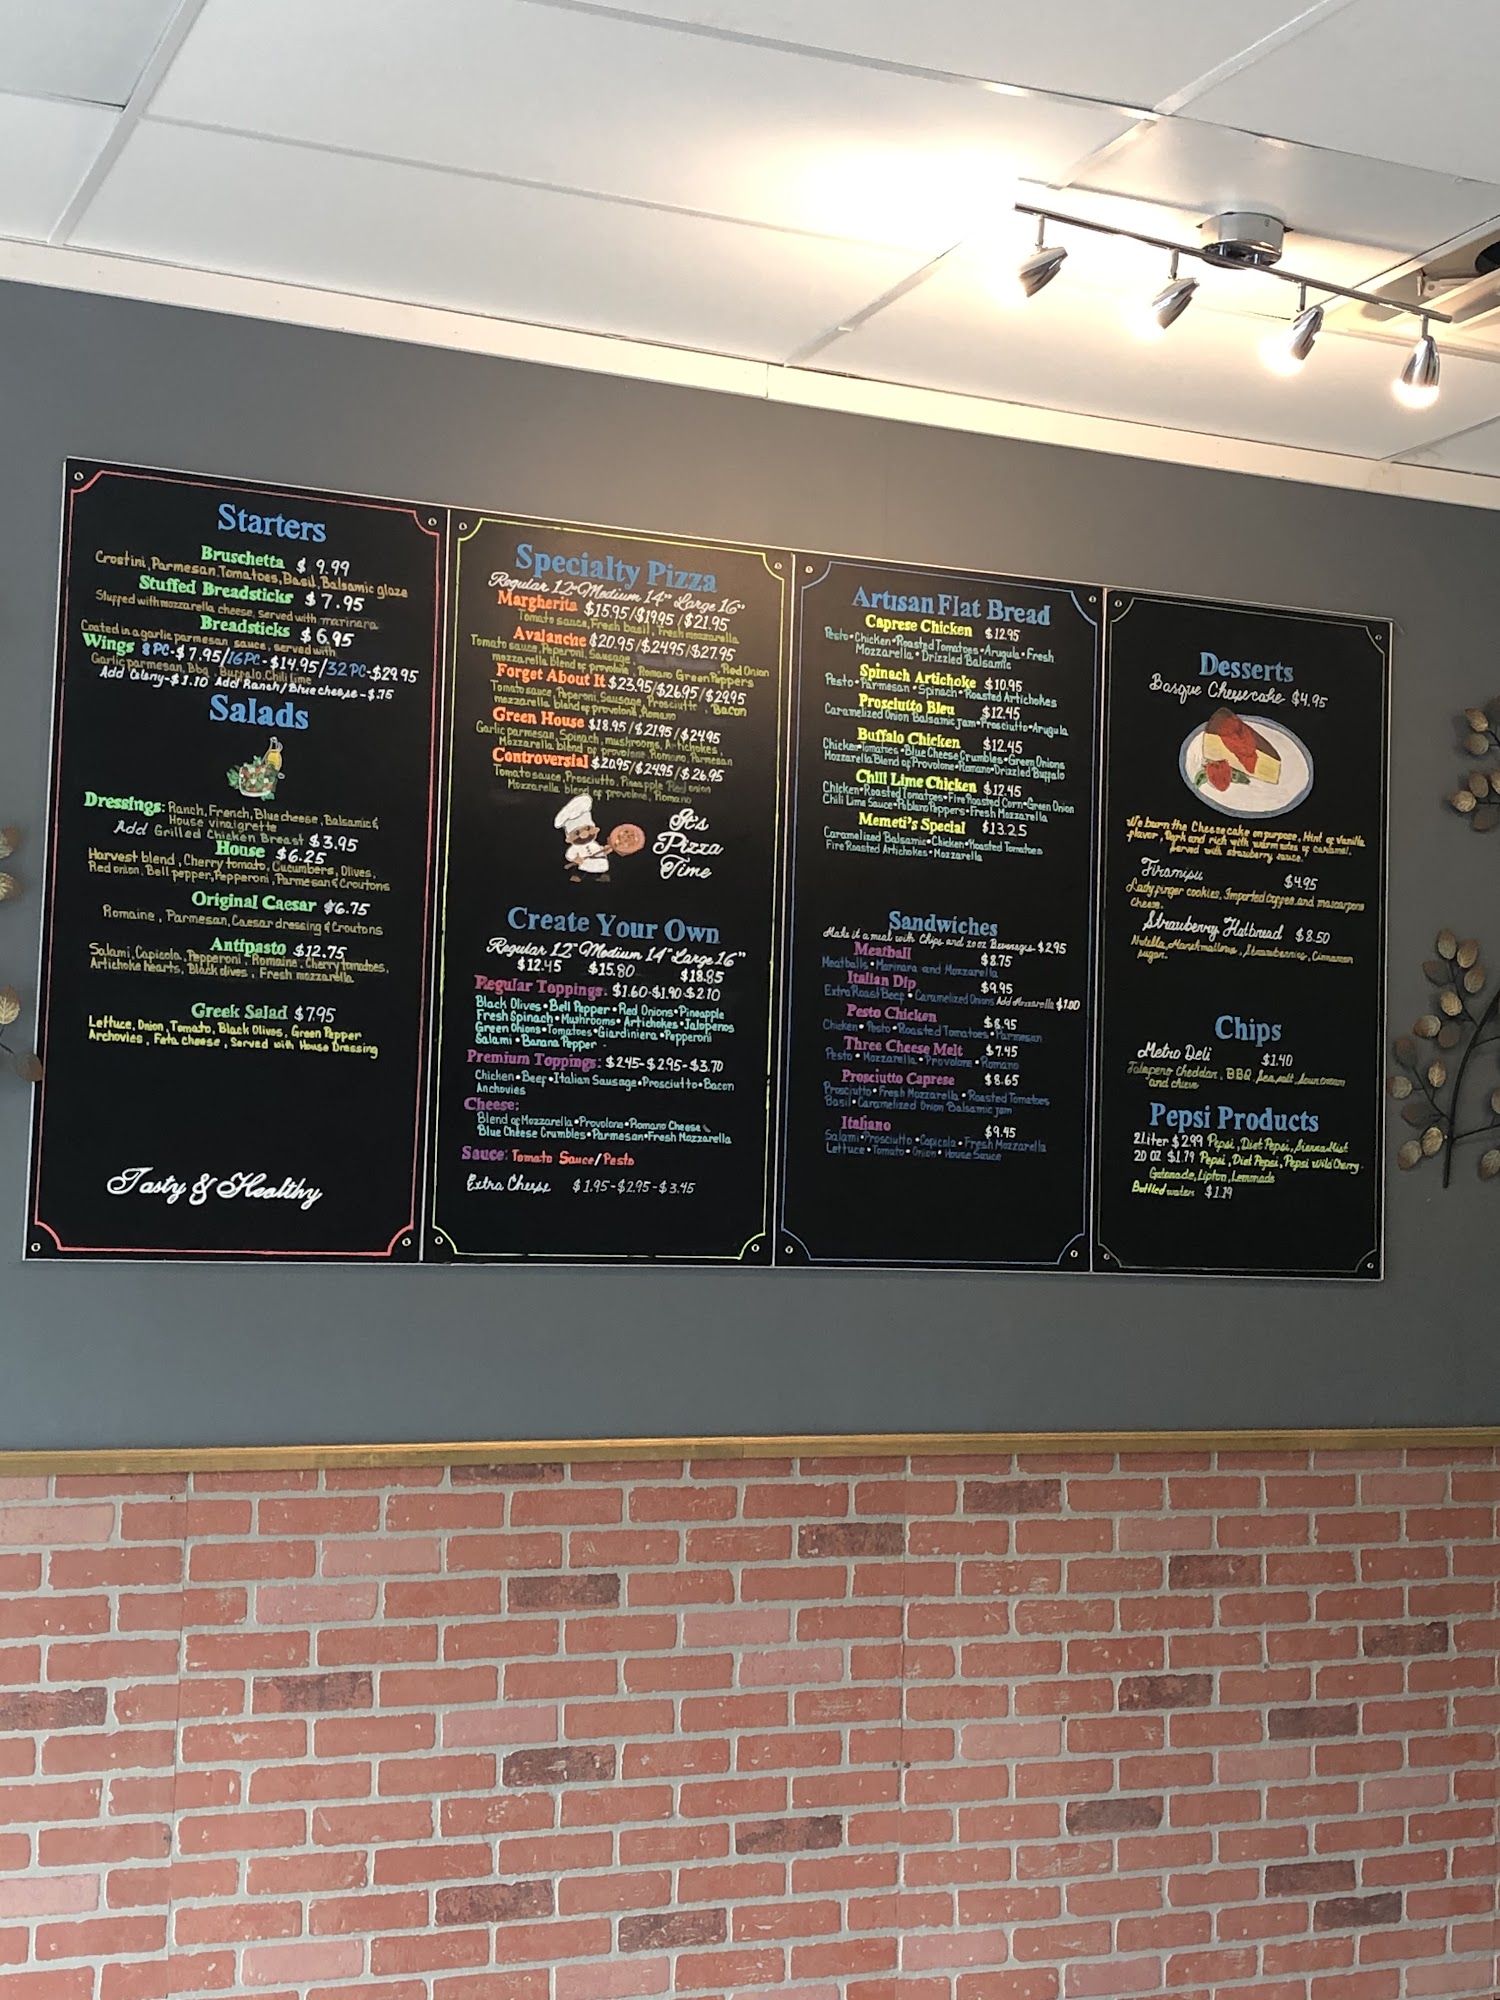 Starters
Bruschetta $ 9.99
Crostini, Parmesan, Tomatoes, Basil, Balsamic glaze
Stuffed Breadsticks $7.95
Stuffed with mozzarella cheese, served with marinara
Breadsticks $6.95
Coated in a garlic parmesan sauce, served with
Wings 8PC-$7.95/16PC-$14.95/32PC-$29.95
Garlic parmesan, Bbq, Buffalo, Chili lime
Add Celery-$1.10 Add Ranch/Blue cheese-$.75
Salads
Dressings: Ranch, French, Blue cheese, Balsamic &
House vinaigrette
Add Grilled Chicken Breast $3.95
House $6.25
Harvest blend, Cherry tomato, Cucumbers, Olives,
Red onion, Bell pepper, Pepperoni, Parmesan & Croutons
Original Caesar $6.75
Romaine, Parmesan, Caesar dressing & Croutons
Antipasto $12.75
Salami, Capicola, Pepperoni, Romaine, Cherry tomatoes,
Artichoke hearts, Black olives, Fresh mozzarella
Greek Salad $7.95
Lettuce, Onion, Tomato, Black Olives, Green Pepper
Archovies, Feta cheese, Served with House Dressing
Tasty & Healthy
Specialty Pizza
Regular 12" Medium 14" Large 16"
Margherita $15.95/$19.95/$21.95
Tomato sauce, Fresh basil, Fresh mozzarella
Avalanche $20.95/$24.95/$27.95
Tomato sauce, Peperoni, Sausage, Red Onion
mozzarella blend of provolone, Romano Green Peppers
Forget About It $23.95/$26.95/$29.95
Tomato sauce, Peperoni, Sausage, Prosciutto, Bacon
mozzarella blend of provolone, Romano
Green House $18.95/$21.95/$24.95
Garlic parmesan, Spinach, mushrooms, Artichokes,
Mozzarella blend of provolone, Romano, Parmesan
Controversial $20.95/$24.95/$26.95
Tomato sauce, Prosciutto, Pineapple Red onion
Mozzarella blend of provolone, Romano
It's
Pizza
Time
Create Your Own
Regular 12" Medium 14" Large 16"
$12.45 $15.80 $18.85
Regular Toppings: $1.60-$1.90-$2.10
Black Olives•Bell Pepper•Red Onions•Pineapple
Fresh Spinach•Mushrooms•Artichokes•Jalopenos
Green Onions•Tomatoes•Giardiniera•Pepperoni
Salami•Banana Pepper
Premium Toppings: $2.45-$2.95-$3.70
Chicken•Beef•Italian Sausage•Prosciutto•Bacon
Anchovies
Cheese:
Blend of Mozzarella•Provolone•Romano Cheese
Blue Cheese Crumbles•Parmesan•Fresh Mozzarella
Sauce: Tomato Sauce/Pesto
Extra Cheese $1.95-$2.95-$3.45
Artisan Flat Bread
Caprese Chicken $12.95
Pesto•Chicken•Roasted Tomatoes•Arugula•Fresh
Mozzarella•Drizzled Balsamic
Spinach Artichoke $10.95
Pesto•Parmesan•Spinach•Roasted Artichokes
Prosciutto Bleu $12.45
Caramelized Onion Balsamic Jam•Prosciutto•Arugula
Buffalo Chicken $12.45
Chicken•Tomatoes•Blue Cheese Crumbles•Green Onions
Mozzarella Blend of Provolone•Romano•Drizzled Buffalo
Chili Lime Chicken $12.45
Chicken•Roasted Tomatoes•Fire Roasted Corn•Green Onion
Chili Lime Sauce•Poblano Peppers•Fresh Mozzarella
Memeti's Special $13.25
Caramelized Balsamic•Chicken•Roasted Tomatoes
Fire Roasted Artichokes•Mozzarella
Sandwiches
Make it a meal with Chips and 20 oz Beverages $2.95
Meatball $8.75
Meatballs•Marinara and Mozzarella
Italian Dip $9.95
Extra Roast Beef•Caramelized Onions Add Mozzarella $1.00
Pesto Chicken $8.95
Chicken•Pesto•Roasted Tomatoes•Parmesan
Three Cheese Melt $7.45
Pesto•Mozzarella•Provolone•Romano
Prosciutto Caprese $8.65
Prosciutto•Fresh Mozzarella•Roasted Tomatoes
Basil•Caramelized Onion Balsamic Jam
Italiano $9.45
Salami•Prosciutto•Capicola•Fresh Mozzarella
Lettuce•Tomato•Onion•House Sauce
Desserts
Basque Cheesecake $4.95
We burn the Cheesecake on purpose, Hint of Vanilla
flavor, Dark and rich with warm notes of caramel.
Served with strawberry sauce.
Tiramisu $4.95
Lady finger cookies, Imported Coffee, and mascarpone
Cheese.
Strawberry Flatbread $8.50
Nutella, Marshmallows, Strawberries, Cinnamon
sugar.
Chips
Metro Deli $1.40
Jalapeno Cheddar, BBQ, Sea salt, Sour cream
and chive
Pepsi Products
2 Liter $2.99 Pepsi, Diet Pepsi, Sierra Mist
20 oz $1.79 Pepsi, Diet Pepsi, Pepsi Wild Cherry
Gatorade, Lipton, Lemonade
Bottled water $1.19